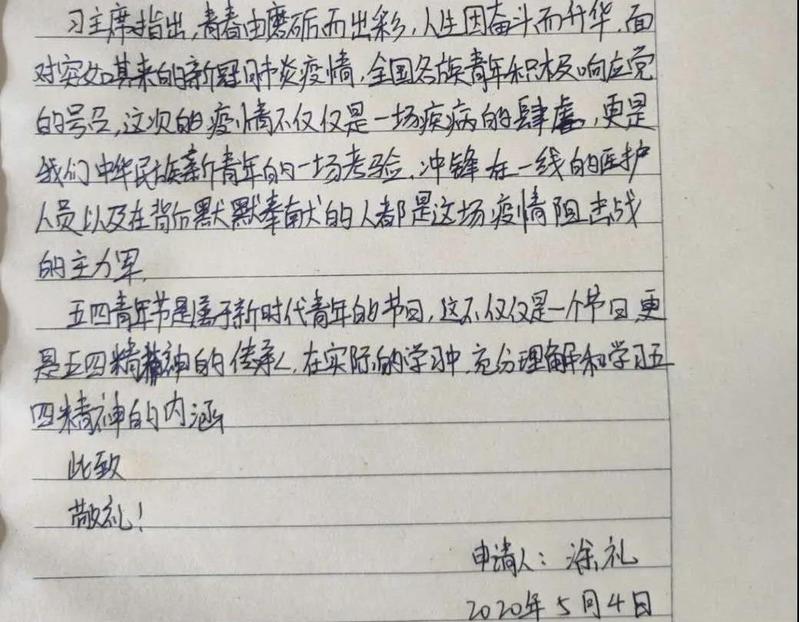 习主席指出，青春由磨砺而出彩，人生因奋斗而升华，面
对突如其来的新冠肺炎疫情，全国各族青年积极响应党
的号召，这次的疫情不仅仅是一场疾病的肆虐，更是
我们中华民族新青年的一场考验，冲锋在一线的医护
人员以及在背后默默奉献的人都是这场疫情阻击战
的主力军，
五四青年节是属于新时代青年的节日，这不仅仅是一个节日更
是五四精神的传承，在实际的学习中，充分理解和学习五
四精神的内涵
此致
敬礼！
申请人：涂礼
2020年5月4日